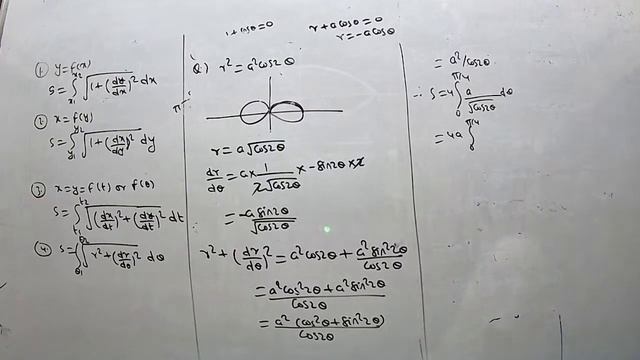 1+cosθ=0
r+acosθ=0
r=-acosθ
① y=f(x)
S=∫x₁^x₂ √(1+(dy/dx)²) dx
② x=f(y)
S=∫y₁^y₂ √(1+(dx/dy)²) dy
③ x=y=f(t) or f(θ)
S=∫t₁^t₂ √((dx/dt)²+(dy/dt)²) dt
④ S=∫θ₁^θ₂ √(r²+(dr/dθ)²) dθ
Q.) r²=a²cos2θ
r=a√cos2θ
dr/dθ=a×1/(2√cos2θ)×-sin2θ×2
=-a sin2θ/√cos2θ
r²+(dr/dθ)²=a²cos2θ+a²sin²2θ/cos2θ
=(a²cos²2θ+a²sin²2θ)/cos2θ
=a²(cos²2θ+sin²2θ)/cos2θ
=a²/cos2θ
∴ S=4∫₀^π/4 a/√cos2θ dθ
=4a∫₀^π/4